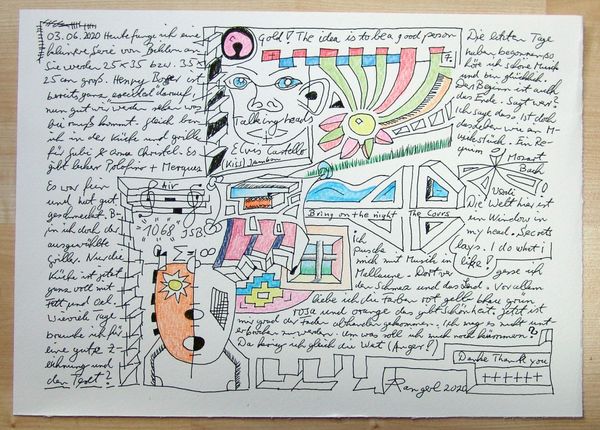 03.06.2020 Heute fange ich eine
Serie von Bildern an
Sie werden 25 x 35 bzw. 35 x
25 cm groß. Henry Boger ist
bereits ganz darauf,
nun gut wir werden sehen was
bei raus kommt. gleich bin
ich in der Küche und grille
für Gabi & Anna Christel. Es
gibt lecker Polofino + Merques
Es war fein
und hat gut
geschmeckt. B-
in ich doch der
ausgewählte
Griller. Nur die
Küche ist jetzt
ganz voll mit
Fett und Oel.
Wieviel Tage
brauche ich für
eine gute Z-
eichnung und
den Text?
Gold! The idea is to be a good person
7.
Talking heads
Elvis Costello
Kiss Jambon
Air
"1068" JSB
Bring on the night The Corrs
Die letzten Tage
haben begonnen, so
höre ich schöne Musik
und bin glücklich.
Der Beginn ist auch
das Ende. Sagt wer?
Ich sage das. Ist doch
daneben wie am M-
usikstück. Ein Re-
quiem
Mozart
Bach
Usoli
Die Welt hier ist
ein Window in
my head. Secrets
lays. I do what i
like!
ich
pusche
mich mit Musik in
Mellaune. Dort ver-
gesse ich
den Schmerz und das Leid. Vor allem
liebe ich die Farben rot gelb blau grün
rosa und orange das gibt Schönheit. Jetzt ist
mir grad der Faden abhanden gekommen. Ich mag es nicht unt-
erbrochen zu werden. Um was soll ich mich noch kümmern?
Da krieg ich gleich die Wut (Anger!)
Danke Thank you
++++++
Rangerl 2020